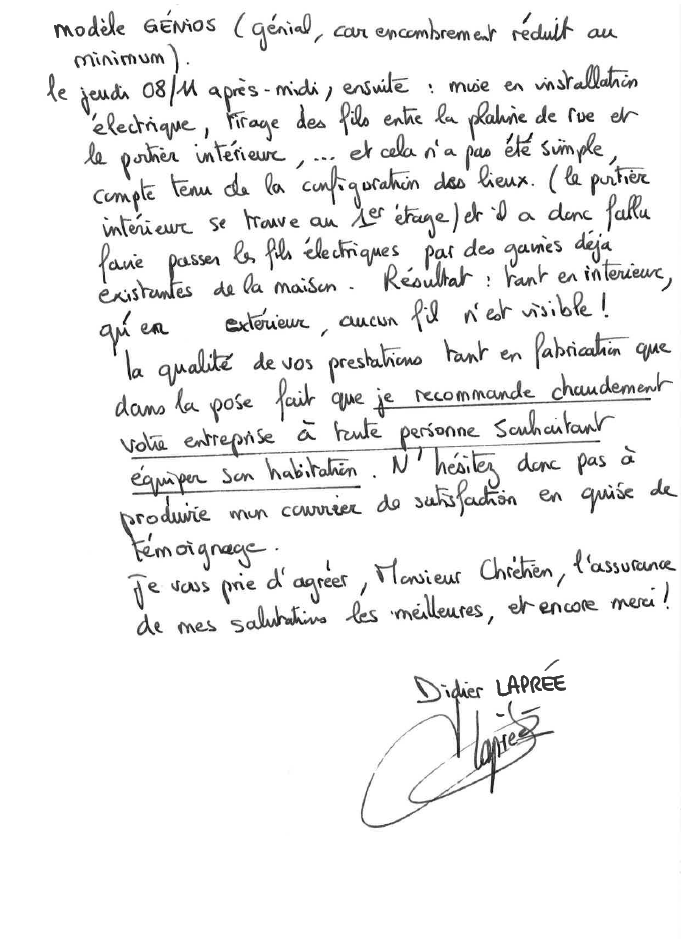 modèle GÉNIOS (génial, car encombrement réduit au
minimum).
le jeudi 08/11 après-midi, ensuite : mise en installation
électrique, tirage des fils entre la platine de rue et
le portier intérieur, ... et cela n'a pas été simple,
compte tenu de la configuration des lieux. (le portier
intérieur se trouve au 1er étage) et il a donc fallu
faire passer les fils électriques par des gaines déjà
existantes de la maison. Résultat : tant en intérieur,
qu'en extérieur, aucun fil n'est visible !
la qualité de vos prestations tant en fabrication que
dans la pose fait que je recommande chaudement
votre entreprise à toute personne souhaitant
équiper son habitation. N'hésitez donc pas à
produire mon courrier de satisfaction en guise de
témoignage.
Je vous prie d'agréer, Monsieur Chrétien, l'assurance
de mes salutations les meilleures, et encore merci !
Didier LAPRÉE
Laprée